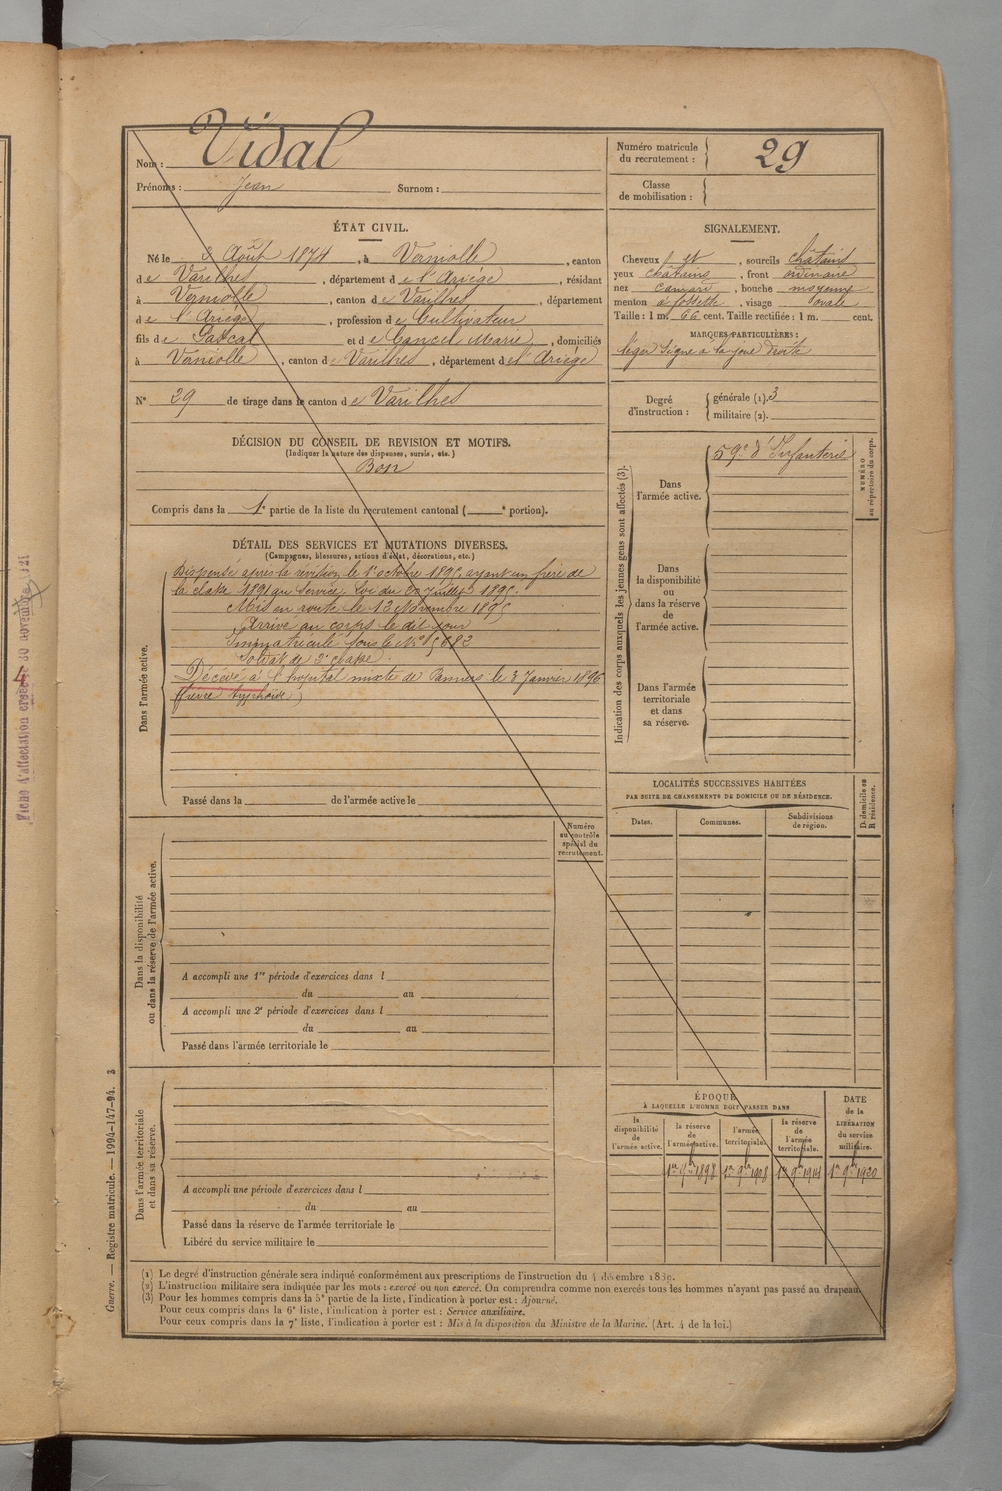 Nom : Vidal
Prénoms : Jean Surnom :
Numéro matricule du recrutement : 29
Classe de mobilisation :
ÉTAT CIVIL.
Né le 3 Août 1874, à Verniolle, canton
de Varilhes, département de l'Ariège, résidant
à Verniolle, canton de Varilhes, département
de l'Ariège, profession de Cultivateur
fils de Pascal et de Cancel Marie, domiciliés
à Verniolle, canton de Varilhes, département de l'Ariège
N° 29 de tirage dans le canton de Varilhes
SIGNALEMENT.
Cheveux et, sourcils châtains
yeux châtains, front ordinaire
nez camard, bouche moyenne
menton à fossette, visage ovale
Taille : 1 m. 66 cent. Taille rectifiée : 1 m. cent.
MARQUES PARTICULIÈRES :
léger signe à la joue droite
Degré d'instruction : générale (1). 3
militaire (2).
DÉCISION DU CONSEIL DE REVISION ET MOTIFS.
(Indiquer la nature des dispenses, sursis, etc.)
Bon
Compris dans la 1e partie de la liste du recrutement cantonal ( e portion).
DÉTAIL DES SERVICES ET MUTATIONS DIVERSES.
(Campagnes, blessures, actions d'éclat, décorations, etc.)
Dans l'armée active.
Dispensé après la révision le 1er octobre 1895, ayant un frère de
la classe 1891 au service. Loi du 20 Juillet 1895.
Mis en route le 13 Novembre 1895
Arrivé au corps le dit jour
Immatriculé sous le N° 5882
Soldat de 2e classe.
Décédé à l'hopital mixte de Pamiers le 3 Janvier 1896
(fièvre typhoïde)
Passé dans la de l'armée active le
Indication des corps auxquels les jeunes gens sont affectés (3).
Dans l'armée active. 59e d'Infanterie
NUMÉRO au répertoire du corps.
Dans la disponibilité ou dans la réserve de l'armée active.
Dans l'armée territoriale et dans sa réserve.
Numéro au contrôle spécial du recrutement.
Dans la disponibilité ou dans la réserve de l'armée active.
A accompli une 1re période d'exercices dans l
du au
A accompli une 2e période d'exercices dans l
du au
Passé dans l'armée territoriale le
LOCALITÉS SUCCESSIVES HABITÉES
PAR SUITE DE CHANGEMENTS DE DOMICILE OU DE RÉSIDENCE.
Dates. Communes. Subdivisions de région. D. domicile ou R résidence.
Dans l'armée territoriale et dans sa réserve.
A accompli une période d'exercices dans l
du au
Passé dans la réserve de l'armée territoriale le
Libéré du service militaire le
ÉPOQUE
À LAQUELLE L'HOMME DOIT PASSER DANS
la disponibilité de l'armée active. la réserve de l'armée active. l'armée territoriale. la réserve de l'armée territoriale.
DATE de la LIBÉRATION du service militaire.
1er 9bre 1898 1er 9bre 1908 1er 9bre 1914 1er 9bre 1920
(1) Le degré d'instruction générale sera indiqué conformément aux prescriptions de l'instruction du 4 décembre 1889.
(2) L'instruction militaire sera indiquée par les mots : exercé ou non exercé. On comprendra comme non exercés tous les hommes n'ayant pas passé au drapeau.
(3) Pour les hommes compris dans la 5e partie de la liste, l'indication à porter est : Ajourné.
Pour ceux compris dans la 6e liste, l'indication à porter est : Service auxiliaire.
Pour ceux compris dans la 7e liste, l'indication à porter est : Mis à la disposition du Ministre de la Marine. (Art. 4 de la loi.)
Guerre. — Registre matricule. — 1994-147-94. 3
Fiche d'affectation créée le 30 novembre 1921